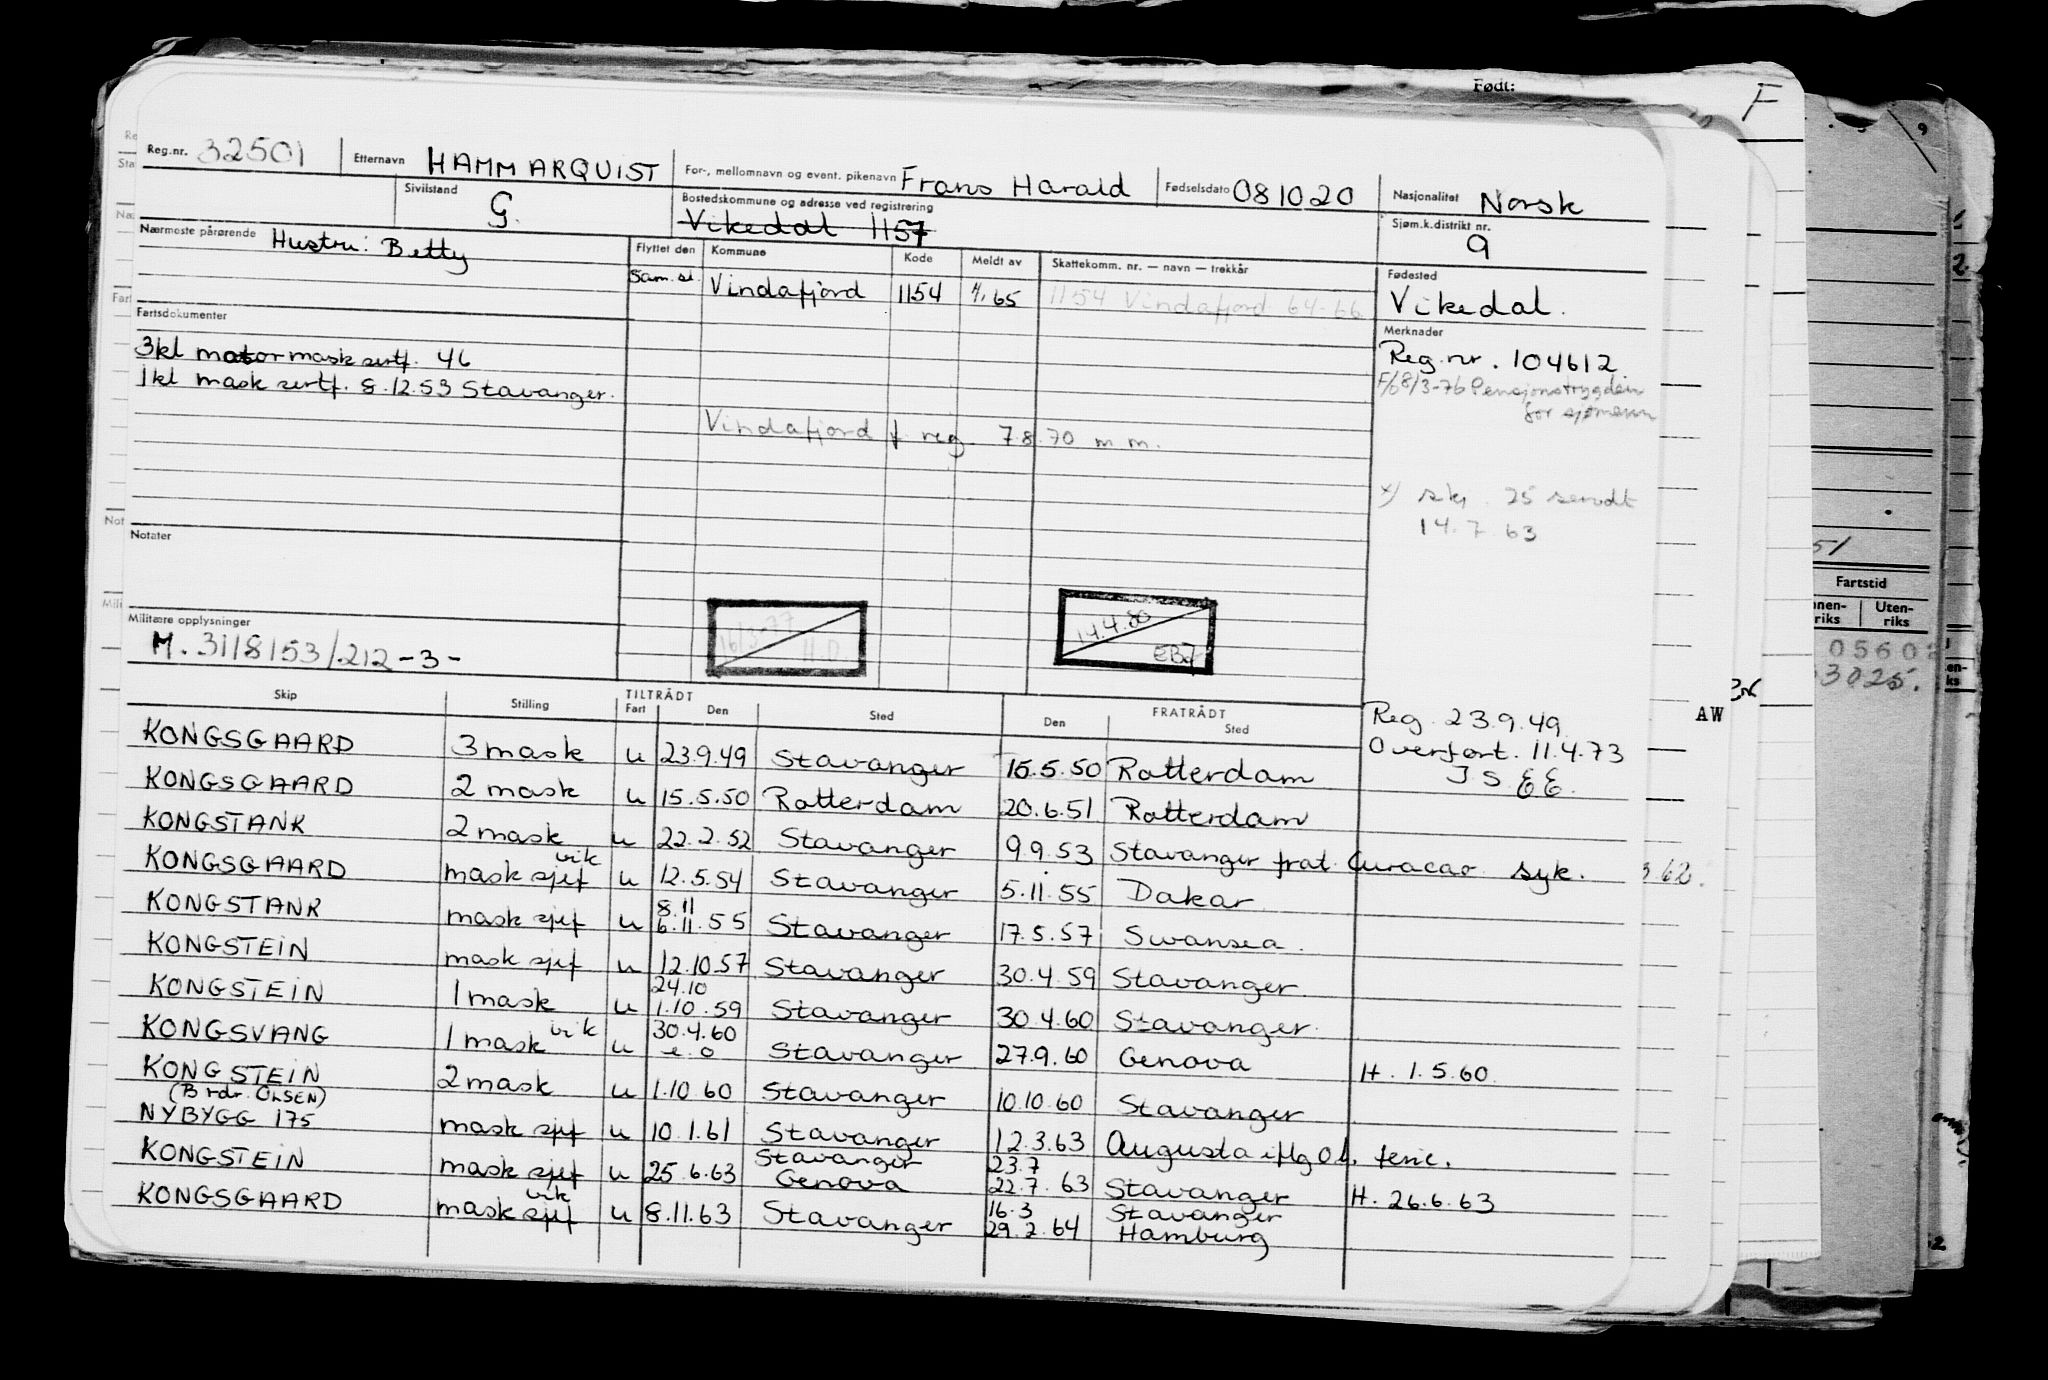 Født:
F
Reg.nr. 32501 Etternavn HAMMARQUIST For-, mellomnavn og event. pikenavn Frans Harald Fødselsdato 081020 Nasjonalitet Norsk
Sivilstand G. Bostedskommune og adresse ved registrering Vikedal 1157 Sjøm.k.distrikt nr. 9
Nærmeste pårørende Hustru: Betty Flyttet den Kommune Kode Meldt av Skattekomm. nr. — navn — trekkår Fødested
Sam. sl. Vindafjord 1154 1/1 65 1154 Vindafjord 64-66 Vikedal.
Fartsdokumenter Merknader
3kl motormask sertf. 46 Reg.nr. 104612.
1kl mask sertf. 8.12.53 Stavanger. F/68/3-76 Pensjonstrygden
for sjømenn
Vindafjord f. reg. 7.8.70 m m.
x) 25 sendt
14.7.63
Notater
16/3-77 H.D.
14.4.80 EBJ
Militære opplysninger
M. 3118153/212-3-
Skip Stilling TILTRÅDT Fart Den Sted FRATRÅDT Den Sted
Reg. 23.9.49
Overført. 11.4.73
KONGSGAARD 3 mask u 23.9.49 Stavanger 15.5.50 Rotterdam
KONGSGAARD 2 mask u 15.5.50 Rotterdam 20.6.51 Rotterdam
KONGSTANK 2 mask u 22.2.52 Stavanger 9.9.53 Stavanger frat. Curacao syk.
KONGSGAARD mask sjef vik u 12.5.54 Stavanger 5.11.55 Dakar
KONGSTANK mask sjef u 8.11 6.11.55 Stavanger 17.5.57 Swansea.
KONGSTEIN mask sjef u 12.10.57 Stavanger 30.4.59 Stavanger.
KONGSTEIN 1 mask u 24.10 1.10.59 Stavanger 30.4.60 Stavanger.
KONGSVANG 1 mask vik u 30.4.60 e.o Stavanger 27.9.60 Genova H. 1.5.60
KONGSTEIN 2 mask u 1.10.60 Stavanger 10.10.60 Stavanger
(Brdr. OLSEN)
NYBYGG 175 mask sjef u 10.1.61 Stavanger 12.3.63 Augusta iflg Ol. ferie.
KONGSTEIN mask sjef u 25.6.63 Stavanger Genova 23.7 22.7.63 Stavanger H. 26.6.63
KONGSGAARD mask sjef vik u 8.11.63 Stavanger 16.3 29.2.64 Stavanger Hamburg
Fartstid
Uten-
riks
AW